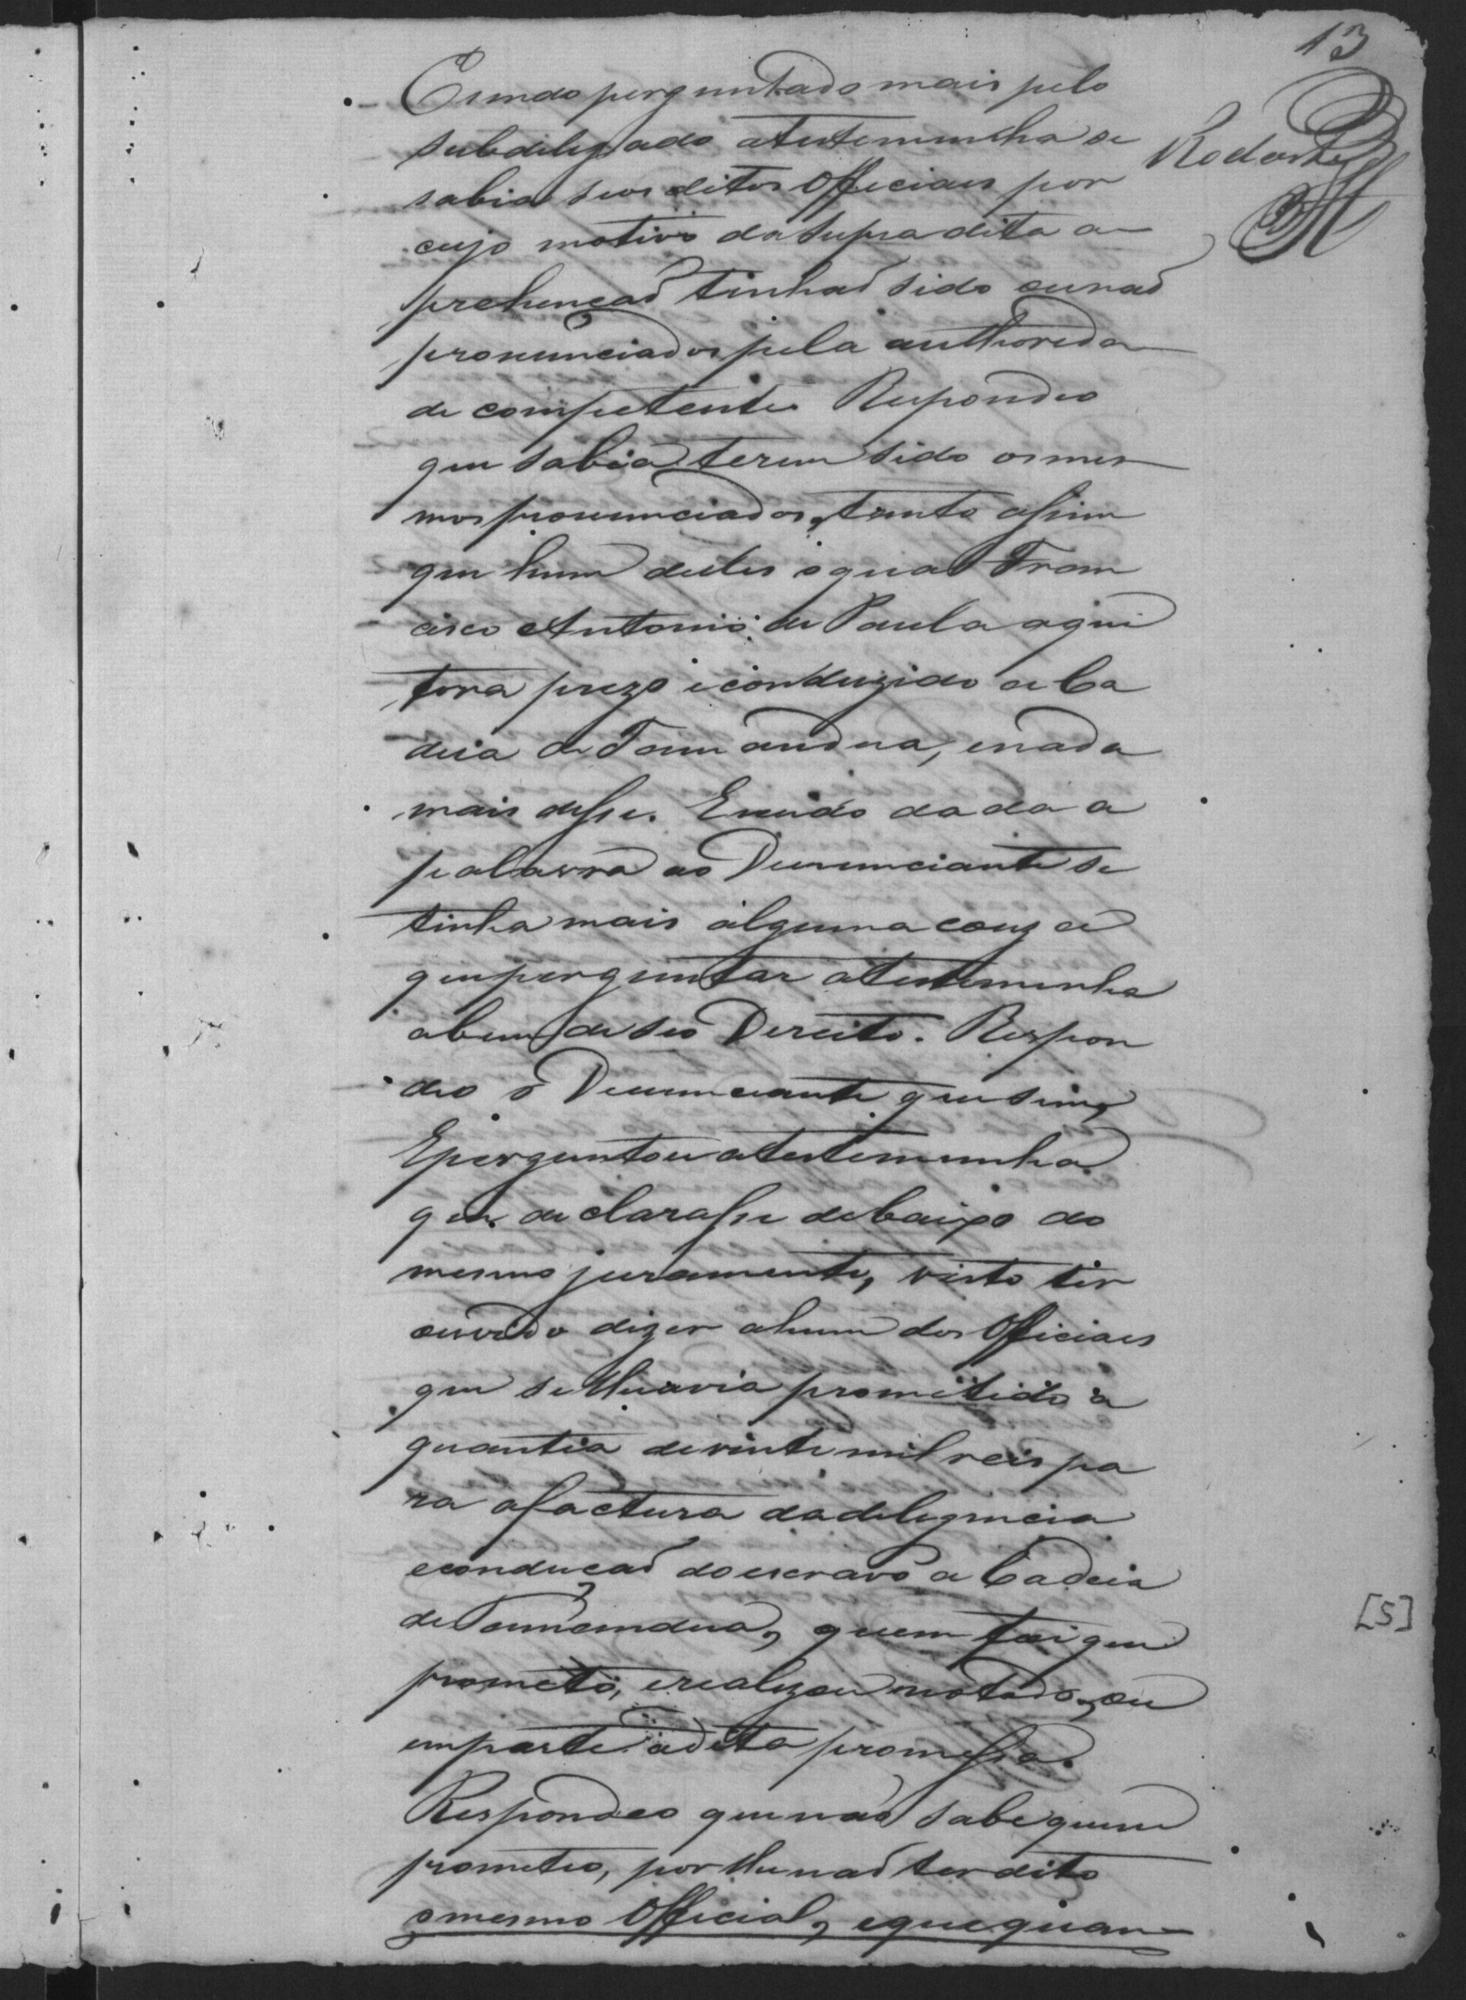 13
Rodarte
E sendo perguntado mais pelo
subdelegado atestemunha se
sabia se os ditos Officiaes por
cujo motivo da supra dita a
prehençaõ tinhaõ sido ou naõ
pronunciados pela authorida
de competente. Respondeo
que sabia terem sido os mes
mos pronunciados, tanto assim
que hum delles o qual Fran
cisco Antonio de Paula aqui
fora prezo e conduzido a Ca
deia de Tamandua, enada
mais disse. E sendo dada a
palavra ao Denunciante se
tinha mais alguma couza
que perguntar atestemunha
abem de seo Dereito. Respon
deo o Denunciante que sim,
E perguntou atestemunha
que declarasse debaixo do
mesmo juramento, visto ter
ouvido dizer ahum dos Officiaes
que se lhe avia prometido a
quantia de vinte mil reis pa
ra afactura dadeligencia
econduçaõ do escravo a Cadeia
de Tamandua, quem foi que
prometeo, erealizou no todo, ou
emparte adita promessa.
Respondeo que naõ sabe quem
prometeo, por lhe naõ ter dito
omesmo Official, e que quan
[5]